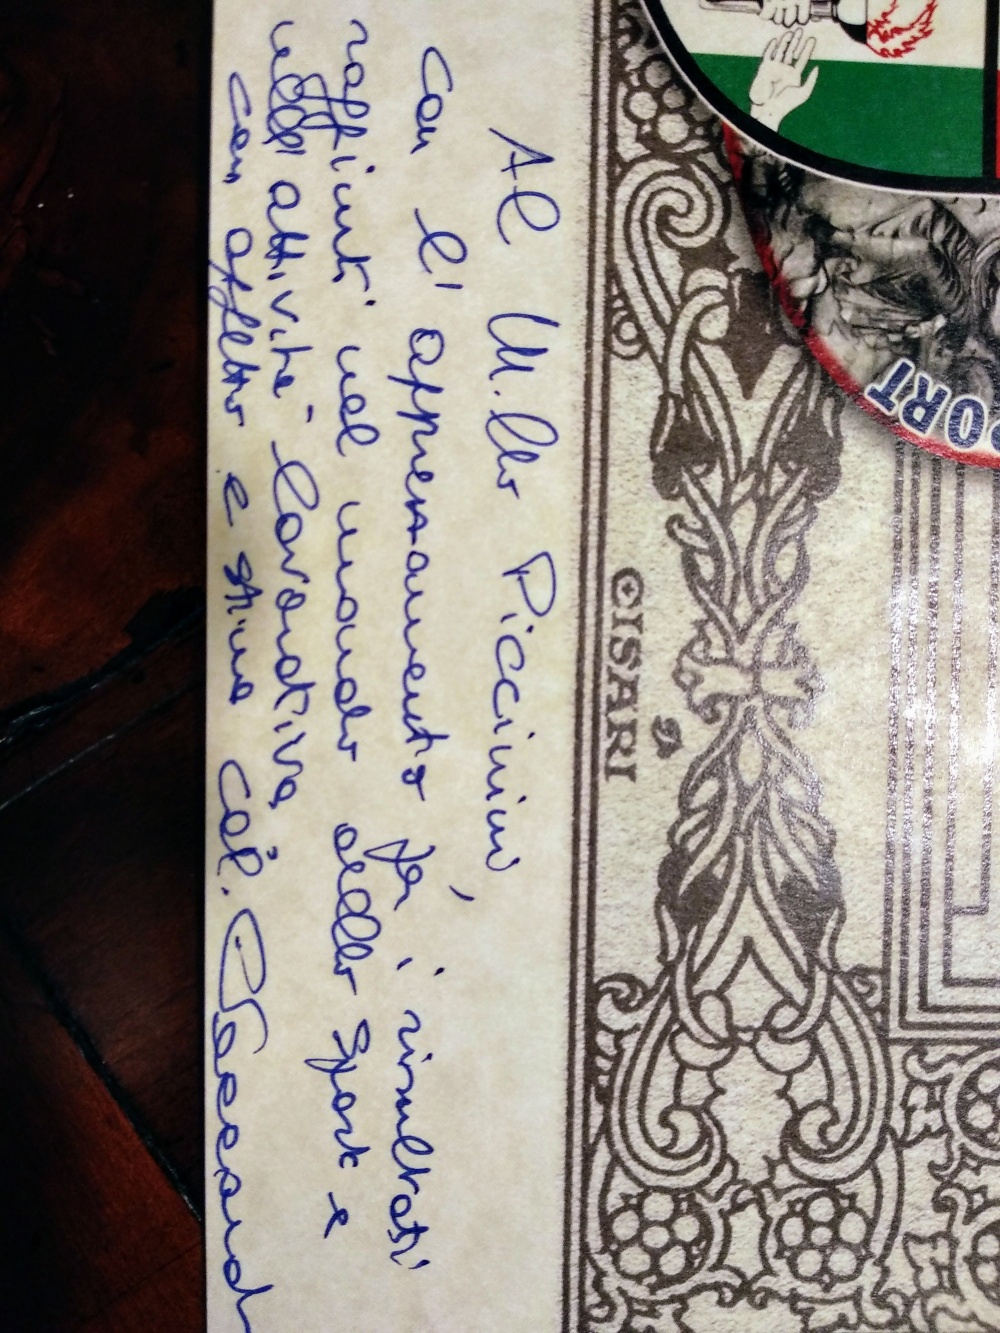 PORT
©ISARI
Al M.llo Piccinini,
con l'apprezzamento per i risultati
raggiunti nel mondo dello sport e
nell'attività lavorativa,
con affetto e stima Col.